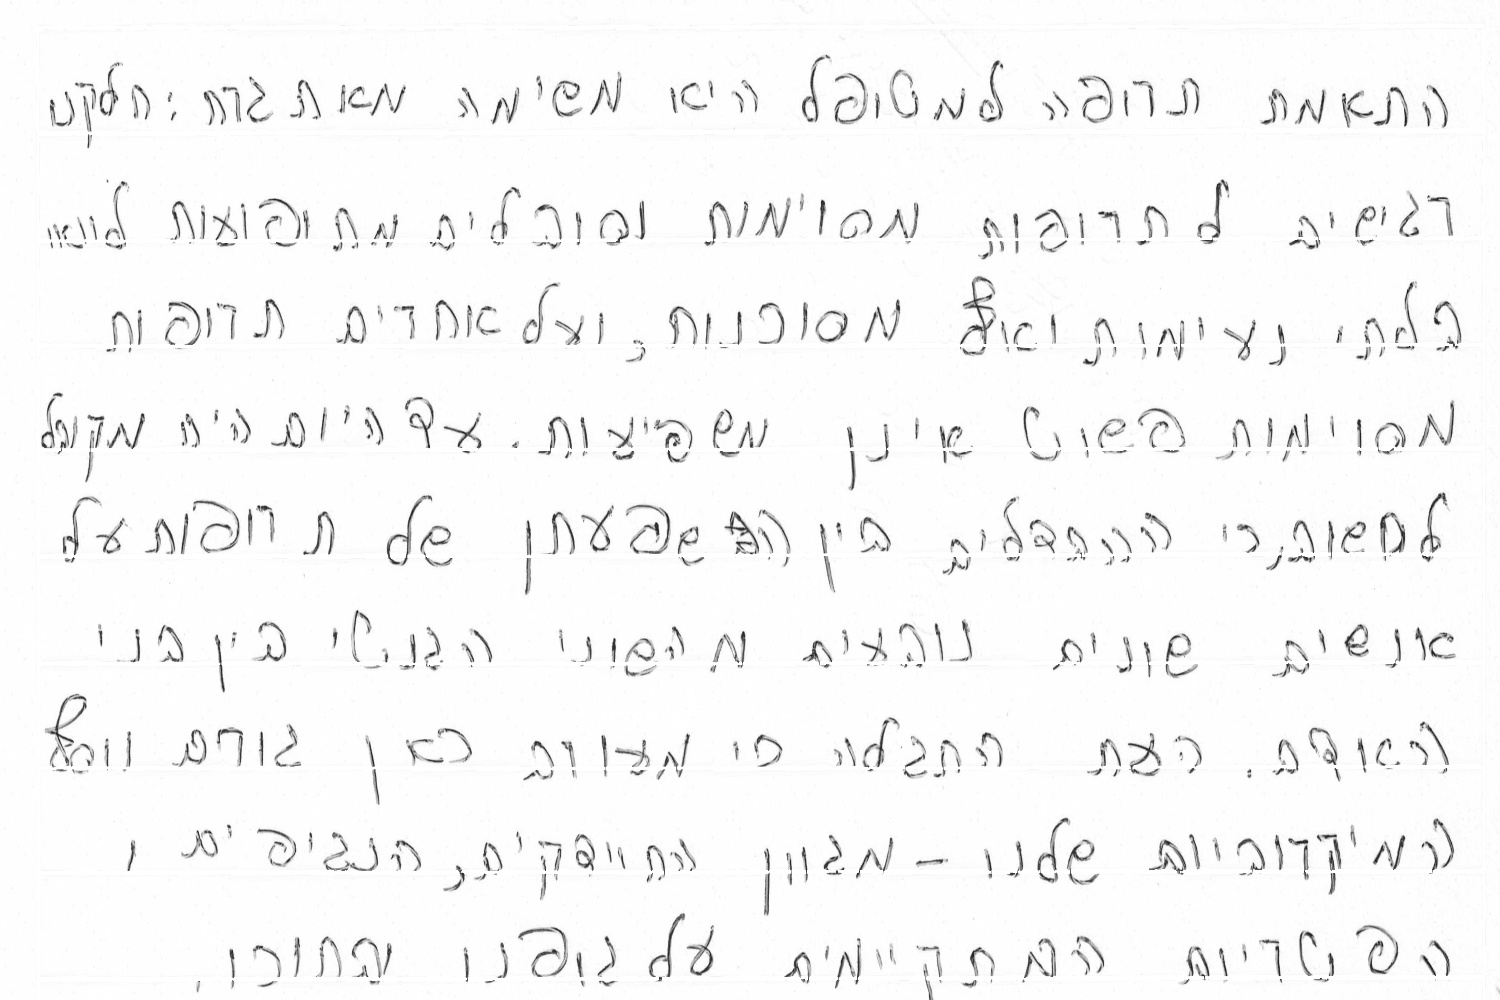 התאמת תרופה למטופל היא משימה מאתגרת: חלקנו
רגישים לתרופות מסוימות וסובלים מתופעות לוואי
בלתי נעימות ואף מסוכנות, ועל אחדים תרופות
מסוימות פשוט אינן משפיעות. עד היום היה מקובל
לחשוב, כי ההבדלים בין השפעתן של תרופות על
אנשים שונים נובעים מהשוני הגנטי בין בני
האדם. העת התגלה כי מעורב כאן גורם נוסף
המיקרוביום שלנו – מגוון החיידקים, הנגיפים ו
הפטריות המתקיימים על גופנו ובתוכו.